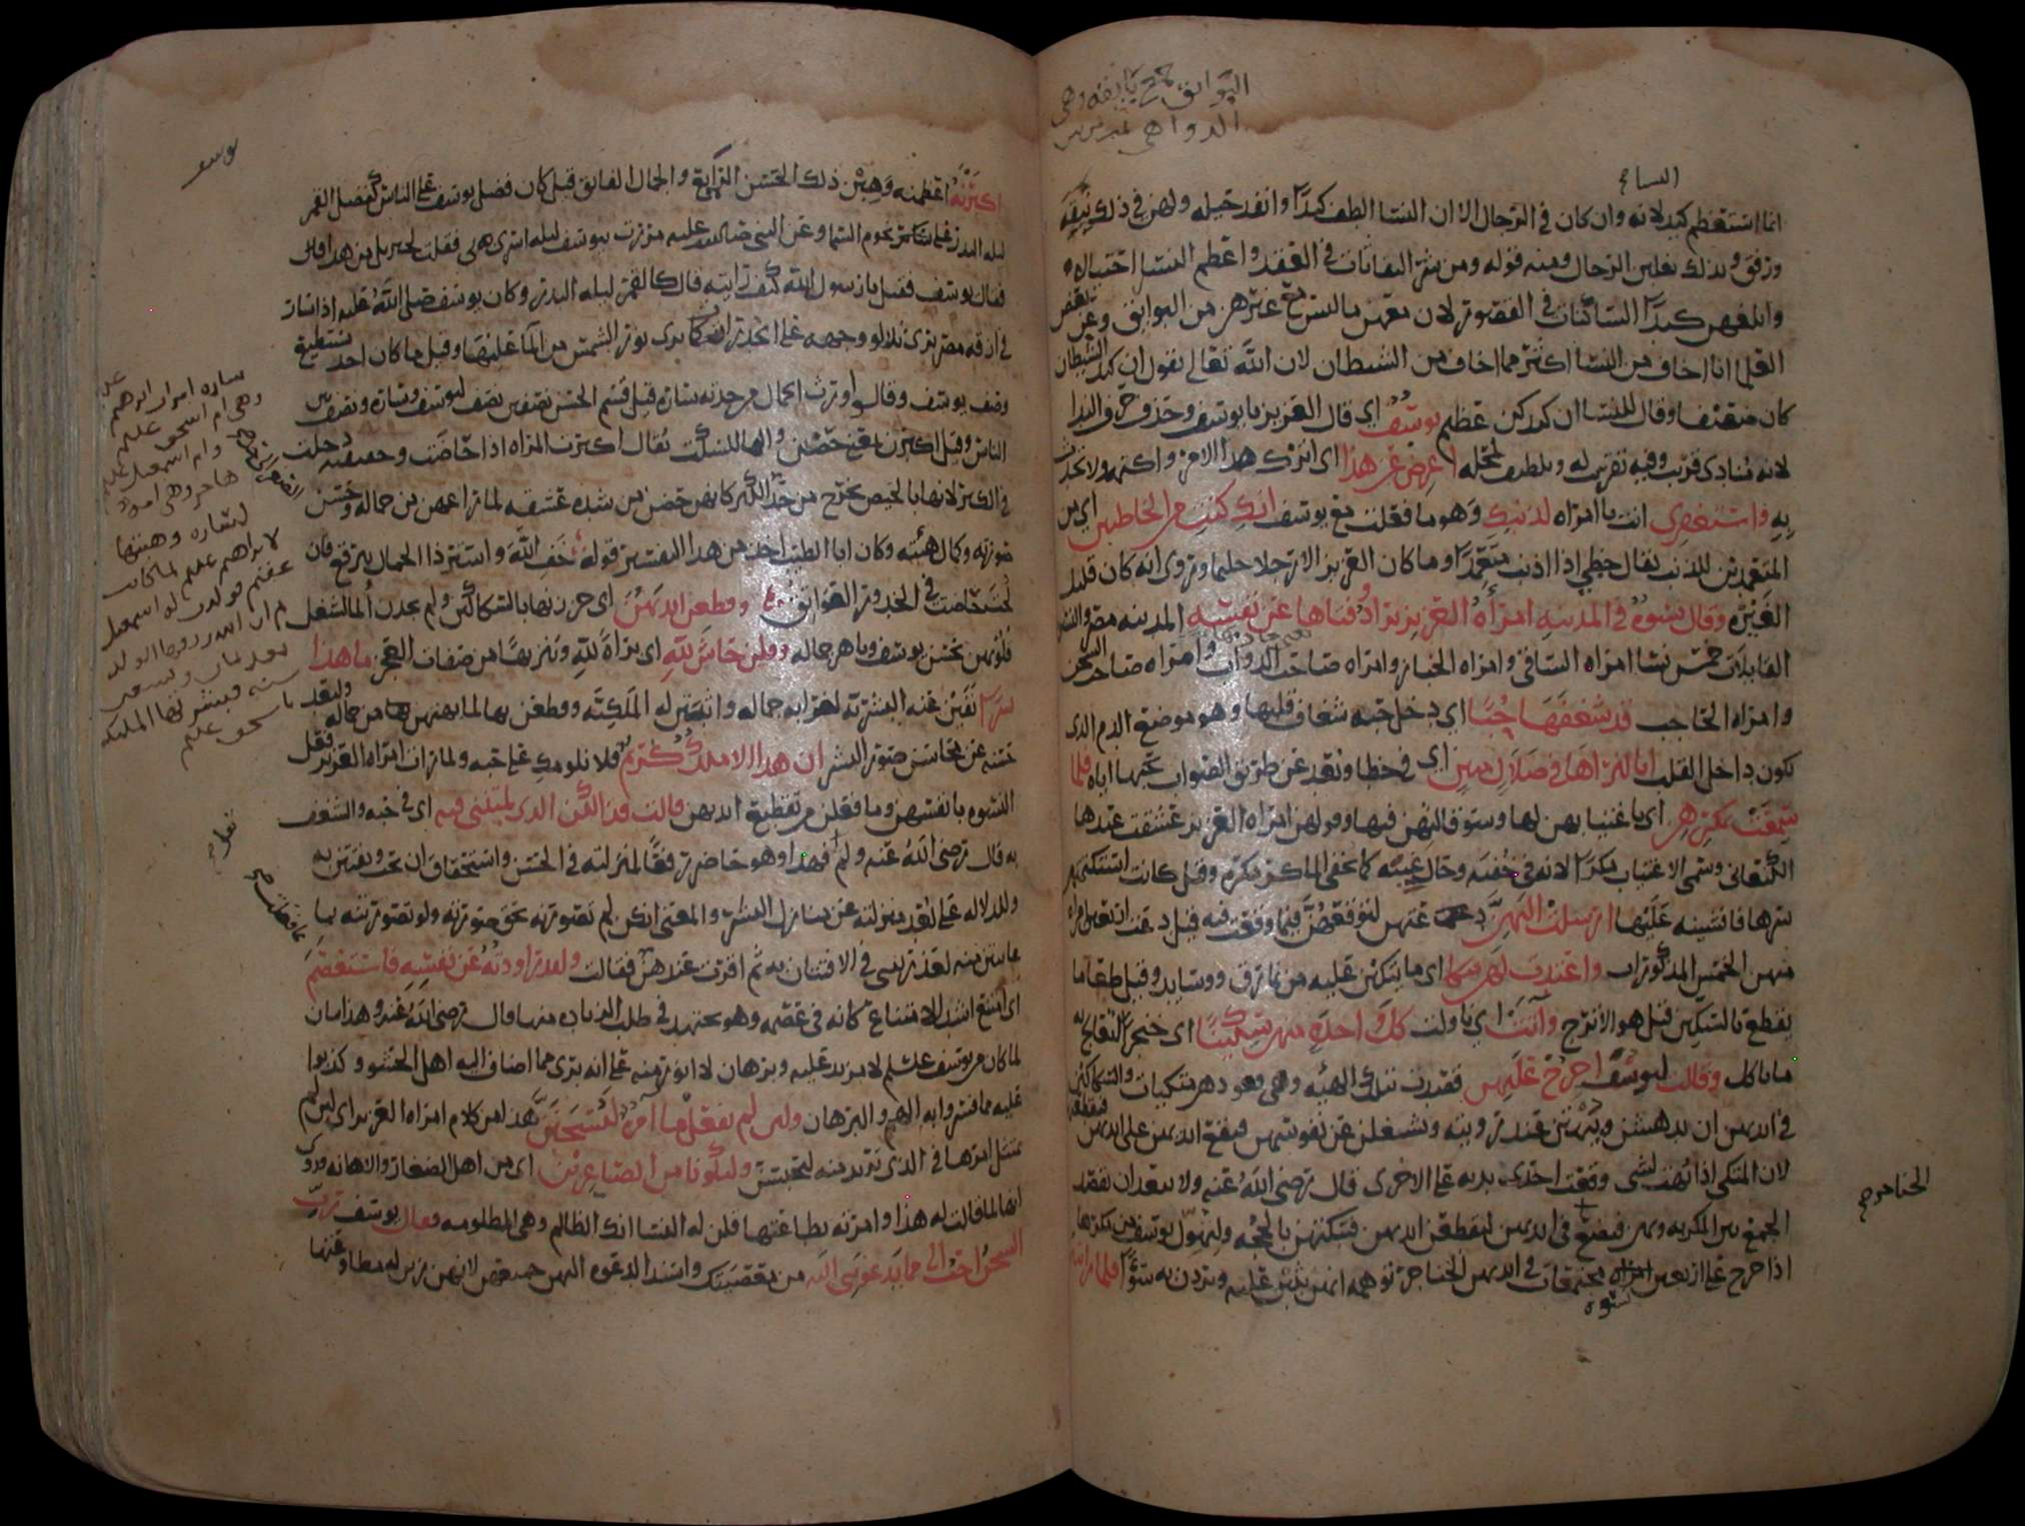 البوائق جمع بائقه وهي
الدواهي
النساء
انما استعظم كيد لانه وان كان في الرجال الا ان النسا الطف كيدًا وانفد حيله ولهن في ذلك نيقه
ورفق وبذلك يغلبن الرجال ومنه قوله ومن شر النفاثات في العقد واعظم النسا احتيالا
وابلغهن كيدًا الساكنات في القصور لان معهن ما ليس مع غيرهن من البوائق وعن بعض
العلما انا اخاف من النسا اكثر مما اخاف من الشيطان لان الله تعالى يقول ان كيد الشيطان
كان ضعيفا وقال للنسا ان كيدكن عظيم يوسف اي قال العزيز يا يوسف وحذف حرف الندا
لانه منادى قريب وفيه تقريب له وتلطيف لمحله اعرض عن هذا اي اترك هذا الامر واكتمه ولا تحدث
به واستغفري انت يا امراه لذنبك وهو ما فعلت مع يوسف انك كنت من الخاطئين اي من
المتعمدين للذنب يقال خطي اذا اذنب متعمدًا وما كان العزيز الا رجلا حليما وروي انه كان قليل
الغيره وقال نسوة في المدينه امراة العزيز تراود فتاها عن نفسه المدينه مصر والنسا
القايلات خمس نسا امراه الساقي وامراه الخباز وامراه صاحب الدواب وامراه صاحب السجن
وامراه الحاجب قد شغفها حبًا اي دخل حبه شغاف قلبها وهو موضع الدم الذي
يكون داخل القلب انا لنراها في ضلال مبين اي في خطا وبعد عن طريق الصواب بحبها اياه فلما
سمعت بمكرهن اي باغتيابهن لها وسو قالتهن فيها وقولهن امراه العزيز عشقت عبدها
الكنعاني وسمى الاغتياب مكرًا لانه في خفيه وحال غيبه كما يخفي الماكر مكره وقيل كانت استكتمتهن
سرها فافشينه عليها ارسلت اليهن دعتهن لتوقفهن فيما وقعت فيه قيل دعت اربعين امراه
منهن الخمس المذكورات واعتدت لهن متكا اي ما يتكين عليه من نمارق ووسايد وقيل طعاما
يقطع بالسكين قيل هو الاترج وآتت اي ناولت كل واحدة منهن سكينًا اي خنجرًا لتقطع به
ما تاكل وقالت ليوسف اخرج عليهن فقصدت بتلك الهيه وهي قعودهن متكيات والسكاكين
في ايديهن ان يدهشن ويبهتن عند رويته ويشغلن عن نفوسهن فيقع ايديهن على ايديهن فيقطعنها
لان المتكي اذا بهت لشي وقعت احدى يديه على الاخرى قال رضي الله عنه ولا يبعد ان تقصد
الجمع بين المكر به وبهن فتضع في ايديهن ليقطعن ايديهن فتبكتهن بالحجه وليهول يوسف من مكرها
اذا خرج على اربعين امراه مجتمعات في ايديهن الخناجر توهمه انهن يثبن عليه ويردن به سوًا فلما راينه
نسوه
الخناجر صح
يوسف
اكبرنه اعظمنه وهبن ذلك الحسن الرايع والجمال الفايق قيل كان فضل يوسف على الناس كفضل القمر
ليله البدر على ساير نجوم السما وعن النبي صلى الله عليه مررت بيوسف ليله اسري بي فقلت لجبريل من هذا
فقال يوسف فقيل يا رسول الله كيف رايته قال كالقمر ليله البدر وكان يوسف صلى الله عليه اذا سار
في ازقه مصر يرى تلالو وجهه على الجدران كما يرى نور الشمس من الما عليها وقيل ما كان احد يستطيع
وصف يوسف وقالوا ورث الجمال من جدته ساره قيل قسم الحسن نصفين نصف ليوسف وساره ونصف بين
الناس وقيل اكبرن بمعنى حضن والها للسكت يقال اكبرت المراه اذا حاضت وحقيقته دخلت
في الكبر لانها بالحيض تخرج من حد الصغر كانهن حضن من شده عشقه لما راعهن من جماله وحسن
صورته وكمال هيئته وكان ابا الطيب اخذ من هذا التفسير قوله خف الله واستر ذا الجمال ببرقع فان
لحت حاضت في الخدور العواتق وقطعن ايديهن اي جرحنها بالسكاكين ولم يجدن الما لشغل
قلوبهن بحسن يوسف وباهر جماله وقلن حاش لله اي براة لله وتنزيهًا من صفات العجز ما هذا
بشرًا نفين عنه البشريه لغرابه جماله واثبتن له الملكيه وقطعن بها لما بهتهن من جماله
عن محاسن صور البشر ان هذا الا ملك كريم فلا نلومك على حبه ولما رات امراه العزيز فعل
النسوه بانفسهن وما فعلن من تقطيع ايديهن قالت فذلكن الذي لمتنني فيه اي في حبه والشغف
به قال رضي الله عنه ولم فهذا وهو حاضر رفعًا لمنزلته في الحسن واستحقاق ان يحب ويفتتن به
وللدلاله على بعد منزلته عن منازل البشر والمعنى انكن لم تصورنه بحق صورته ولو تصورتنه بما
عاينتن منه لعذرتنني في الافتتان به ثم اقرت عندهن فقالت ولقد راودته عن نفسه فاستعصم
اي امتنع اشد الامتناع كانه في عصمه وهو مجتهد في طلب الزياده منها وقال رضي الله عنه وهذا بيان
لما كان من يوسف عليه السلام لا مزيد عليه وبرهان لا انور منه على انه بري مما اضاف اليه اهل الحشو وكذبوا
عليه مما فسروا به الهم والبرهان ولئن لم يفعل ما آمره ليسجنن هذا من كلام امراه العزيز اي لئن لم
يمتثل امرها في الذي تريد منه ليحبسن وليكونا من الصاغرين اي من اهل الصغار والاهانه وروي
انها لما قالت له هذا وامرته بطاعتها قلن له النسا انك الظالم وهي المظلومه فقال يوسف رب
السجن احب الي مما يدعونني اليه من معصيتك واسند الدعوه اليهن جميعهن لانهن زين له مطاوعتها
ساره امراه ابراهيم عليه
وهي ام اسحق
عليه
وام اسمعيل عليه
هاجر وهي امه
لساره وهبتها
لابراهيم عليه لما كانت
عقيم فولدت له اسمعيل